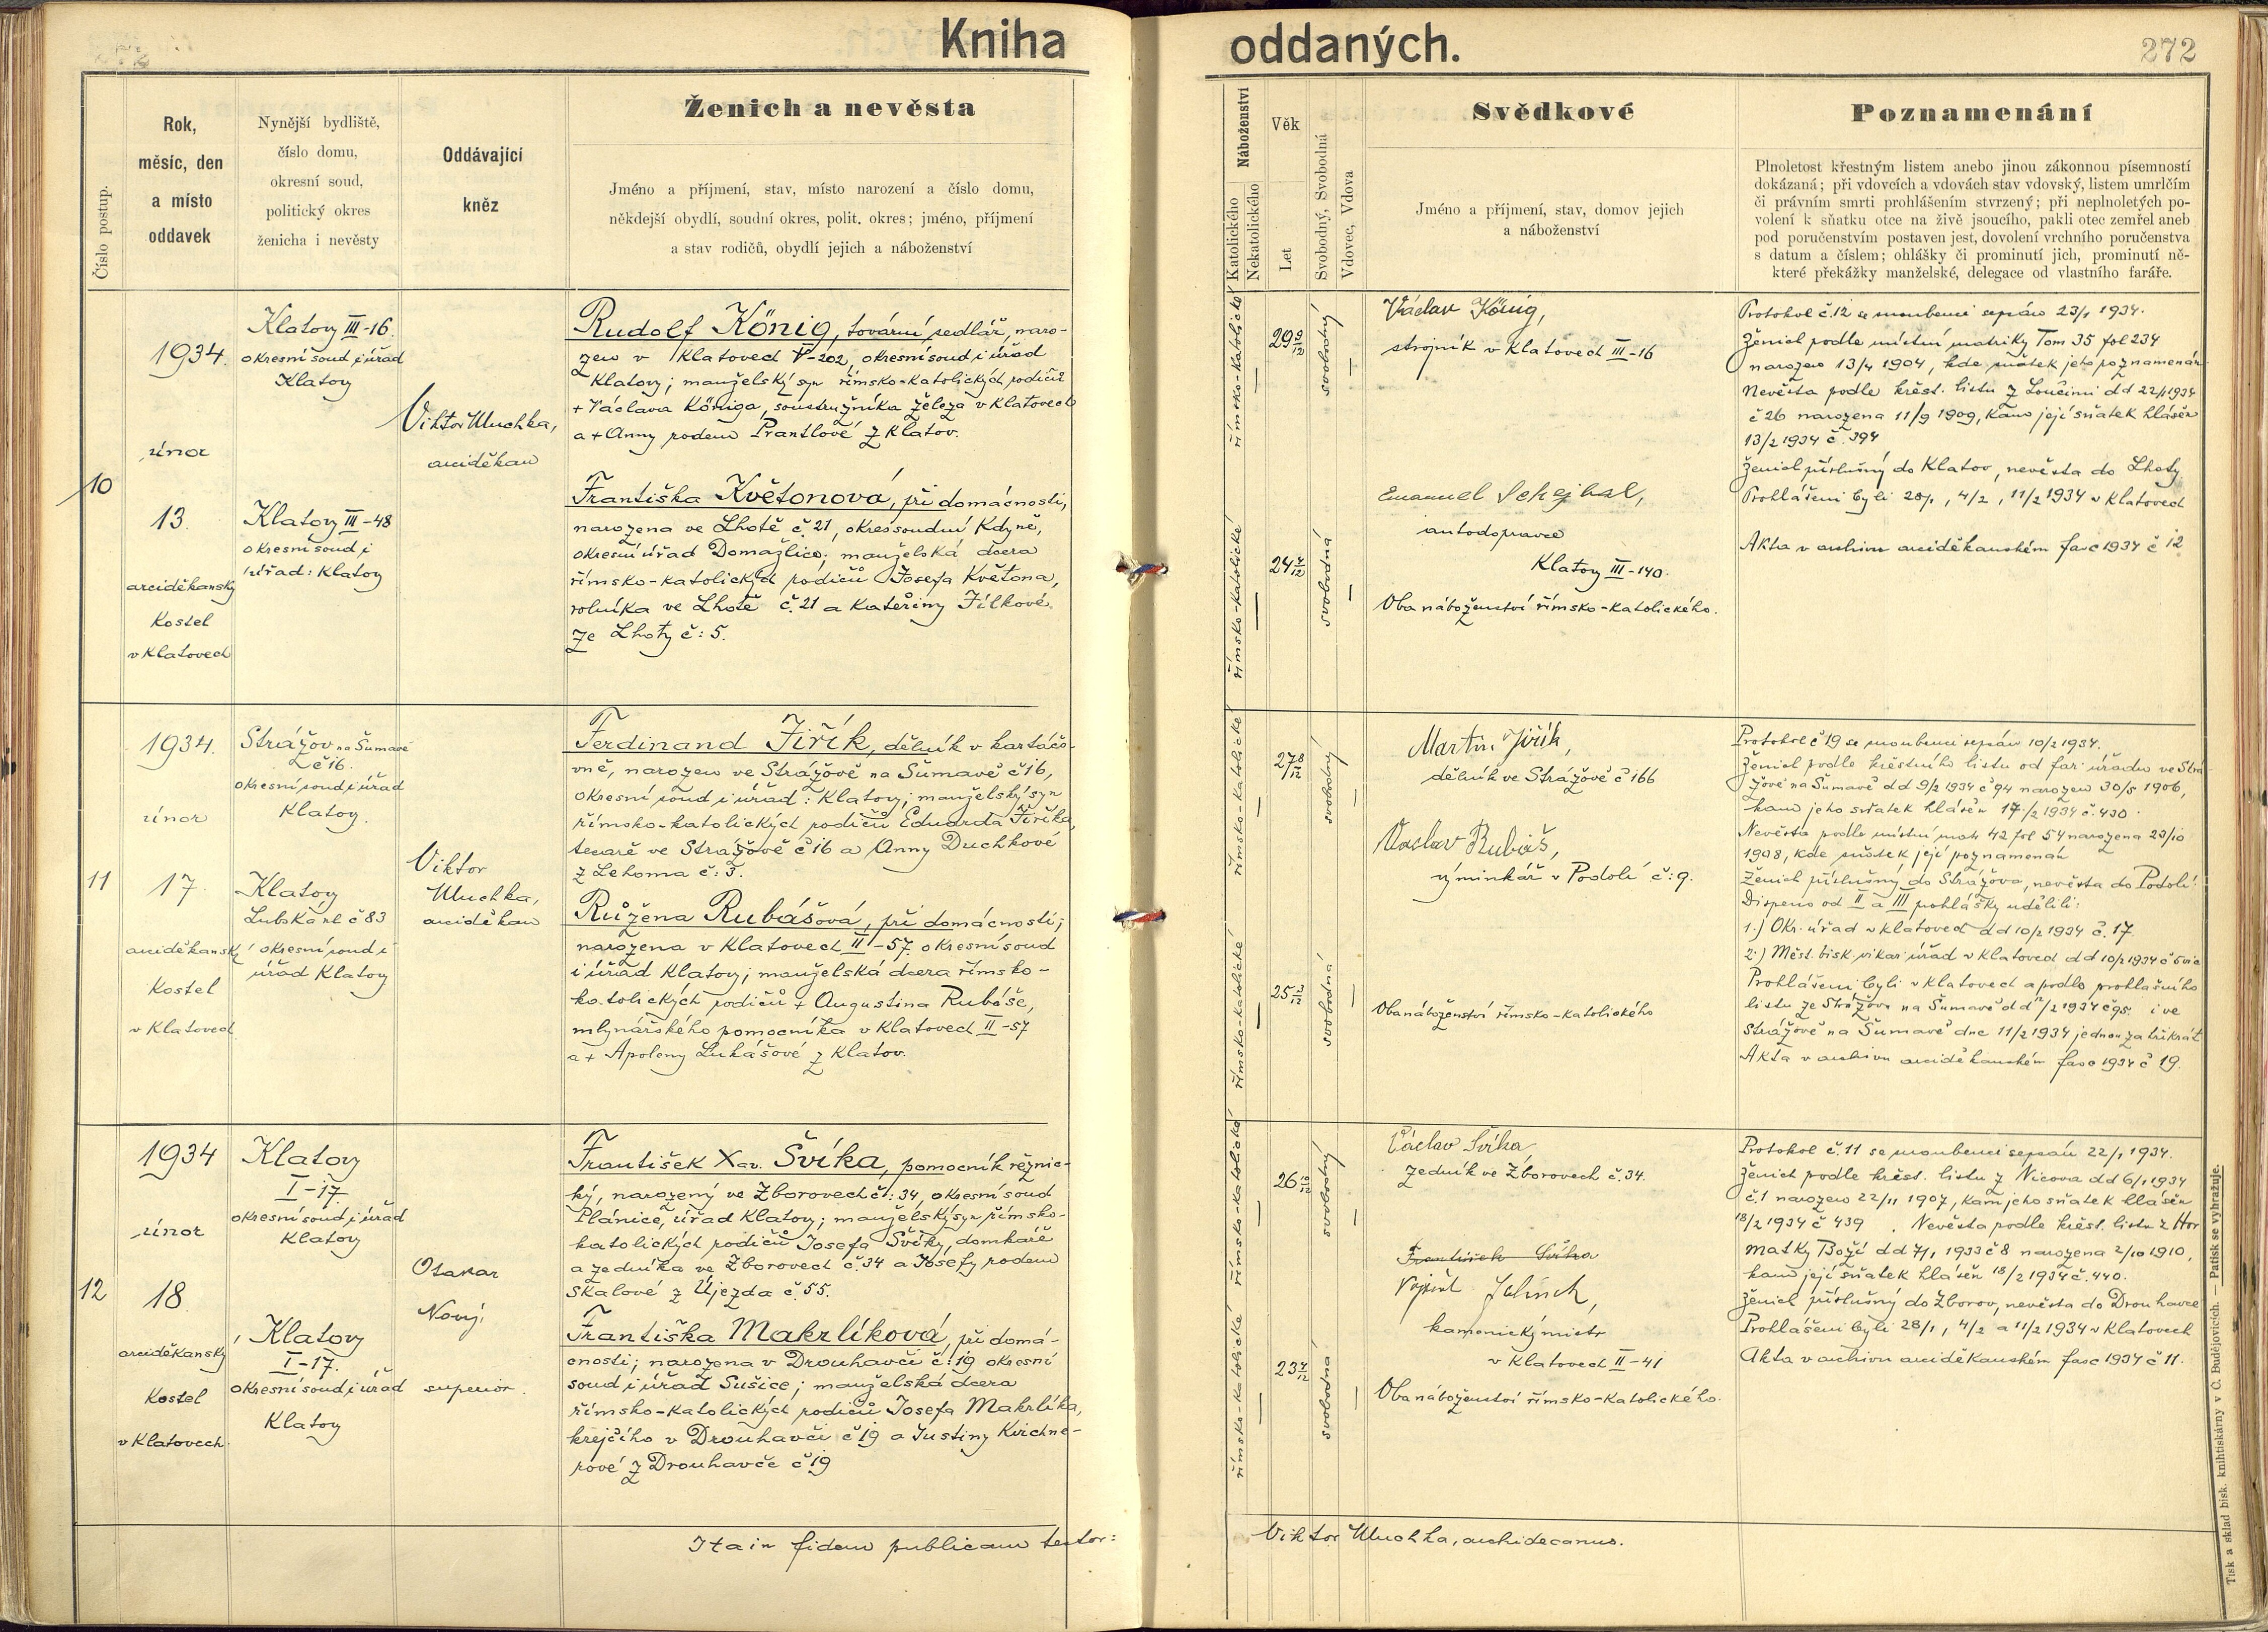 Kniha
oddaných.
272
Číslo postup.
Rok,
měsíc, den
a místo
oddavek
Nynější bydliště,
číslo domu,
okresní soud,
politický okres
ženicha i nevěsty
Oddávající
kněz
Ženich a nevěsta
Jméno a příjmení, stav, místo narození a číslo domu,
někdejší obydlí, soudní okres, polit. okres; jméno, příjmení
a stav rodičů, obydlí jejich a náboženství
Náboženství
Katolického
Nekatolického
Věk
Let
Svobodný, Svobodná
Vdovec, Vdova
Svědkové
Jméno a příjmení, stav, domov jejich
a náboženství
Poznamenání
Plnoletost křestným listem anebo jinou zákonnou písemností
dokázaná; při vdovcích a vdovách stav vdovský, listem umrlčím
či právním smrti prohlášením stvrzený; při neplnoletých po-
volení k sňatku otce na živě jsoucího, pakli otec zemřel aneb
pod poručenstvím postaven jest, dovolení vrchního poručenstva
s datum a číslem; ohlášky či prominutí jich, prominutí ně-
které překážky manželské, delegace od vlastního faráře.
10
1934.
únor
13.
arciděkanský
kostel
v Klatovech
Klatovy III-16.
okresní soud i úřad
Klatovy
Klatovy III-48
okresní soud i
úřad: Klatovy
Viktor Muchka,
arciděkan
Rudolf König, tovární sedlář, naro-
zen v Klatovech V-202, okresní soud i úřad
Klatovy; manželský syn římsko-katolických rodičů
+ Václava Königa, soustružníka železa v Klatovech
a + Anny rodem Prantlové z Klatov.
Františka Květonová, při domácnosti,
narozena ve Lhotě č. 21, okres soudní Kdyně,
okresní úřad Domažlice; manželská dcera
římsko-katolických rodičů Josefa Květona,
rolníka ve Lhotě č. 21 a Kateřiny Jílkové
ze Lhoty č: 5.
římsko-katolické
29 10/12
svobodný
římsko-katolické
24 5/12
svobodná
Václav König,
strojník v Klatovech III-16
Emanuel Schejbal,
autodopravce
Klatovy III-140.
Oba náboženství římsko-katolického.
Protokol č. 12 se snoubenci sepsán 23/1 1934.
Ženich podle místní matriky Tom 35 fol 234
narozen 13/4 1904, kde sňatek jeho poznamenán
Nevěsta podle křest. listu z Loučimi dd 22/1 1934
č 26 narozena 11/9 1909, kam její sňatek hlášen
13/2 1934 č. 394
Ženich příslušný do Klatov, nevěsta do Lhoty
Prohlášeni byli 28/1, 4/2, 11/2 1934 v Klatovech
Akta v archivu arciděkanském fasc 1934 č 12
11
1934.
únor
17.
arciděkanský
kostel
v Klatovech
Strážov na Šumavě
č 16.
okresní soud i úřad
Klatovy.
Klatovy
Lubská ul č 83
okresní soud i
úřad Klatovy
Viktor
Muchka,
arciděkan
Ferdinand Jiřík, dělník v kartáčo-
vně, narozen ve Strážově na Šumavě č 16,
okresní soud i úřad: Klatovy; manželský syn
římsko-katolických rodičů Eduarda Jiříka,
tesaře ve Strážově č 16 a Anny Duchkové
z Lehoma č: 3.
Růžena Rubášová, při domácnosti;
narozena v Klatovech II-57. okresní soud
i úřad Klatovy; manželská dcera římsko-
katolických rodičů + Augustina Rubáše,
mlynářského pomocníka v Klatovech II-57
a + Apoleny Lukášové z Klatov.
římsko-katolické
27 8/12
svobodný
římsko-katolické
25
svobodná
Martin Jiřík,
dělník ve Strážově č 166
Václav Rubáš,
výminkář v Podolí č: 9.
Oba náboženství římsko-katolického
Protokol č 19 se snoubenci sepsán 10/2 1934.
Ženich podle křestního listu od far. úřadu ve Strá-
žově na Šumavě dd 9/2 1934 č 94 narozen 30/5 1906,
kam jeho sňatek hlášen 17/2 1934 č. 430.
Nevěsta podle místní matr 42 fol 54 narozena 23/10
1908, kde sňatek její poznamenán
Ženich příslušný do Strážova, nevěsta do Podolí.
Dispens od II a III prohlášky udělili:
1.) Okr. úřad v Klatovech dd 10/2 1934 č. 17.
2.) Měst. bisk. vikar. úřad v Klatovech dd 10/2 1934 č 5 vic
Prohlášeni byli v Klatovech a podle prohlašního
listu ze Strážova na Šumavě dd /2 1934 č 95. i ve
Strážově na Šumavě dne 11/2 1934 jednou za třikrát
Akta v archivu arciděkanském fasc 1934 č 19.
12
1934
únor
18.
arciděkanský
kostel
v Klatovech.
Klatovy
I-17.
okresní soud i úřad
Klatovy
Klatovy
I-17.
okresní soud i úřad
Klatovy
Otakar
Nový,
superior.
František Xav. Švíka, pomocník řeznic-
ký, narozený ve Zborovech č: 34, okresní soud
Plánice, úřad Klatovy; manželský syn římsko-
katolických rodičů Josefa Švíky, domkaře
a zedníka ve Zborovech č. 34 a Josefy rodem
Skalové z Újezda č. 55.
Františka Makrlíková, při domá-
cnosti; narozena v Drouhavči č: 19 okresní
soud i úřad Sušice; manželská dcera
římsko-katolických rodičů Josefa Makrlíka,
krejčího v Drouhavči č 19 a Justiny Kirchne-
rové z Drouhavče č 19
římsko-katolické
26
svobodný
římsko-katolické
23 4/12
svobodná
Václav Švíka
zedník ve Zborovech č. 34.
František Švíka
Vojtěch Jelínek,
kamenický mistr
v Klatovech II-41
Oba náboženství římsko-katolického.
Protokol č. 11 se snoubenci sepsán 22/1 1934.
Ženich podle křest. listu z Nicova dd 6/1 1934
č. 1 narozen 22/11 1907, kam jeho sňatek hlášen
18/2 1934 č 439. Nevěsta podle křest. listu z Hor
Matky Boží dd 7/1 1933 č 8 narozena 2/10 1910,
kam její sňatek hlášen 18/2 1934 č. 440.
Ženich příslušný do Zborov, nevěsta do Drouhavce
Prohlášeni byli 28/1, 4/2 a 11/2 1934 v Klatovech
Akta v archivu arciděkanském fasc 1934 č 11.
Ita in fidem publicam testor:
Viktor Muchka, archidecanus.
Tisk a sklad bisk. knihtiskárny v Č. Budějovicích. — Patisk se vyhražuje.